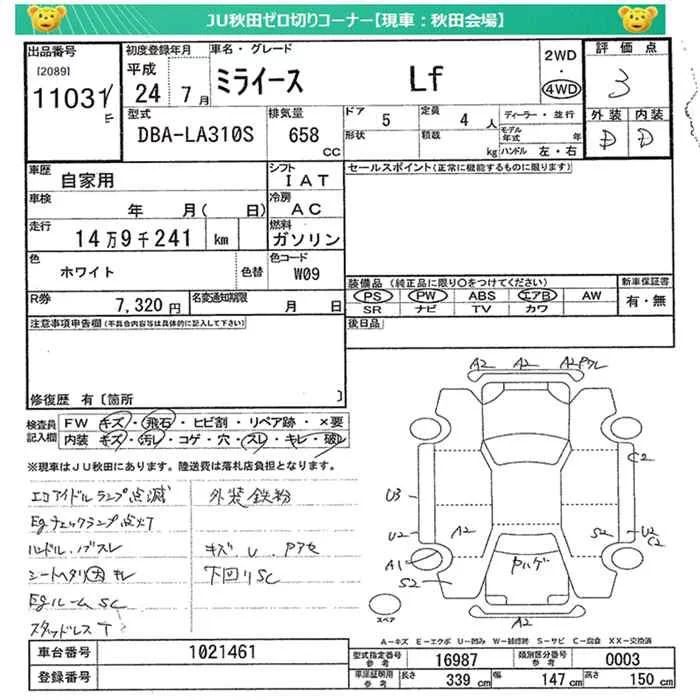 JU秋田ゼロ切りコーナー【現車：秋田会場】
出品番号
[2089]
11031
初度登録年月
平成
24 7月
車名・グレード
ミライース Lf
2WD
・
4WD
評価点
3
外装 内装
D D
型式
DBA-LA310S
排気量
658
CC
ドア 5
形状
定員 4 人
積載 kg
ディーラー・並行
モデル年式 年
ハンドル 左・右
車歴
自家用
シフト
IAT
車検
年 月( 日)
冷房
AC
走行
14万9千241 km
燃料
ガソリン
色
ホワイト
色替
色コード
W09
R券
7,320円
名変通知期限
月 日
セールスポイント(正常に機能するものに限ります)
装備品 (純正品に限り○をつけてください)
PS PW ABS エアB AW
SR ナビ TV カワ
新車保証書
有・無
後日品
注意事項申告欄(不具合内容等は具体的に記入して下さい)
修復歴 有〔箇所 〕
検査員記入欄
FW キズ・飛石・ヒビ割・リペア跡・×要
内装 キズ・汚レ・コゲ・穴・スレ・キレ・破レ
※現車はJU秋田にあります。陸送費は落札店負担となります。
エコアイドルランプ点滅
Egチェックランプ点灯
ハンドル、バスレ
シートヘタリ大キレ
EgルームSC
スタッドレスT
外装鉄粉
キズ U. Pアセ
下回りSC
A2 A2 A2Pワレ
C2
U3
U2 A2 S2 U2
C2
A1
S2
ヤハゲ
A2
スペア
A−キズ E−エクボ U−凹み W−補修跡 S−サビ C−腐食 XX−交換済
車台番号 1021461
登録番号
型式指定番号 参考 16987
類別区分番号 参考 0003
車庫証明用 参考 長さ 339 cm 幅 147 cm 高さ 150 cm